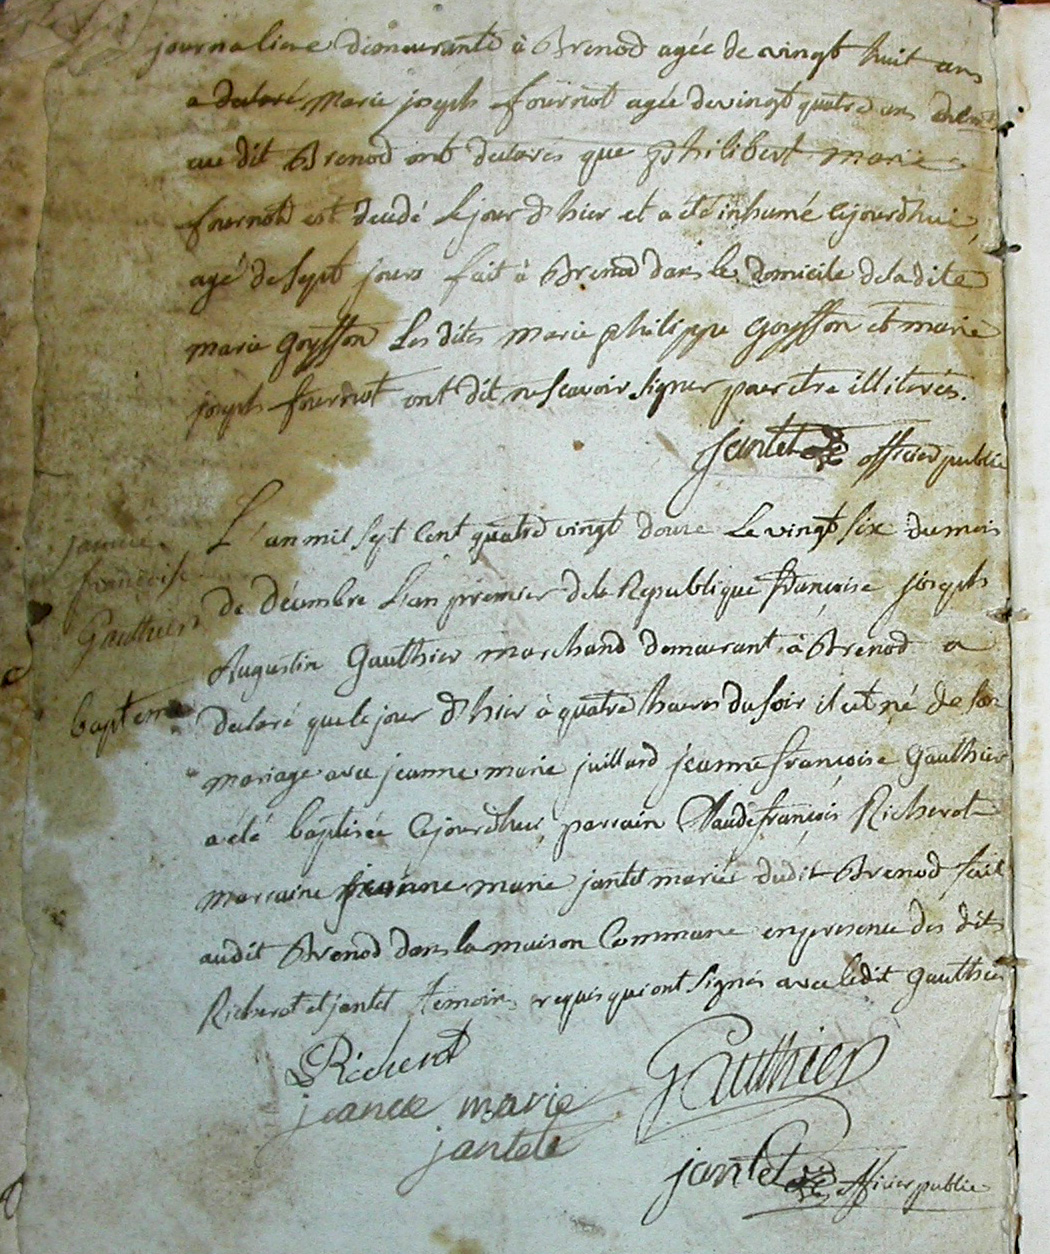 journaliere demeurante à Brenod agée de vingt huit ans
a declaré marie joseph fournot agée de vingt quatre ans
au dit Brenod ont declarés que philibert marie
fournot est decedé le jour d'hier et a été inhumé cejourdhui,
agé de sept jours fait à Brenod dans le domicile de la dite
marie goyffon Les dites marie philippe goyffon et marie
joseph fournot ont dit ne scavoir signer pour etre illiterées.
jantet officier public
L'an mil sept cent quatre vingt douze Le vingt six du mois
jeanne
françoise
Gauthier
baptem
de décembre L'an premier de la Republique françoise joseph
Augustin Gauthier marchand demeurant à Brenod a
declaré que le jour d'hier à quatre heures du soir il est né de son
mariage avec jeanne marie juillard jeanne françoise Gauthier
a été baptisée cejourdhui parrain Claude françois Richerot
marraine jeanne marie jantet mariée dudit Brenod fait
audit Brenod dans la maison Commune en presence des dits
Richerot et jantet temoins requis qui ont signés avec ledit Gauthier
Richerot
Gauthier
jeanne marie
jantet
jantet officier public